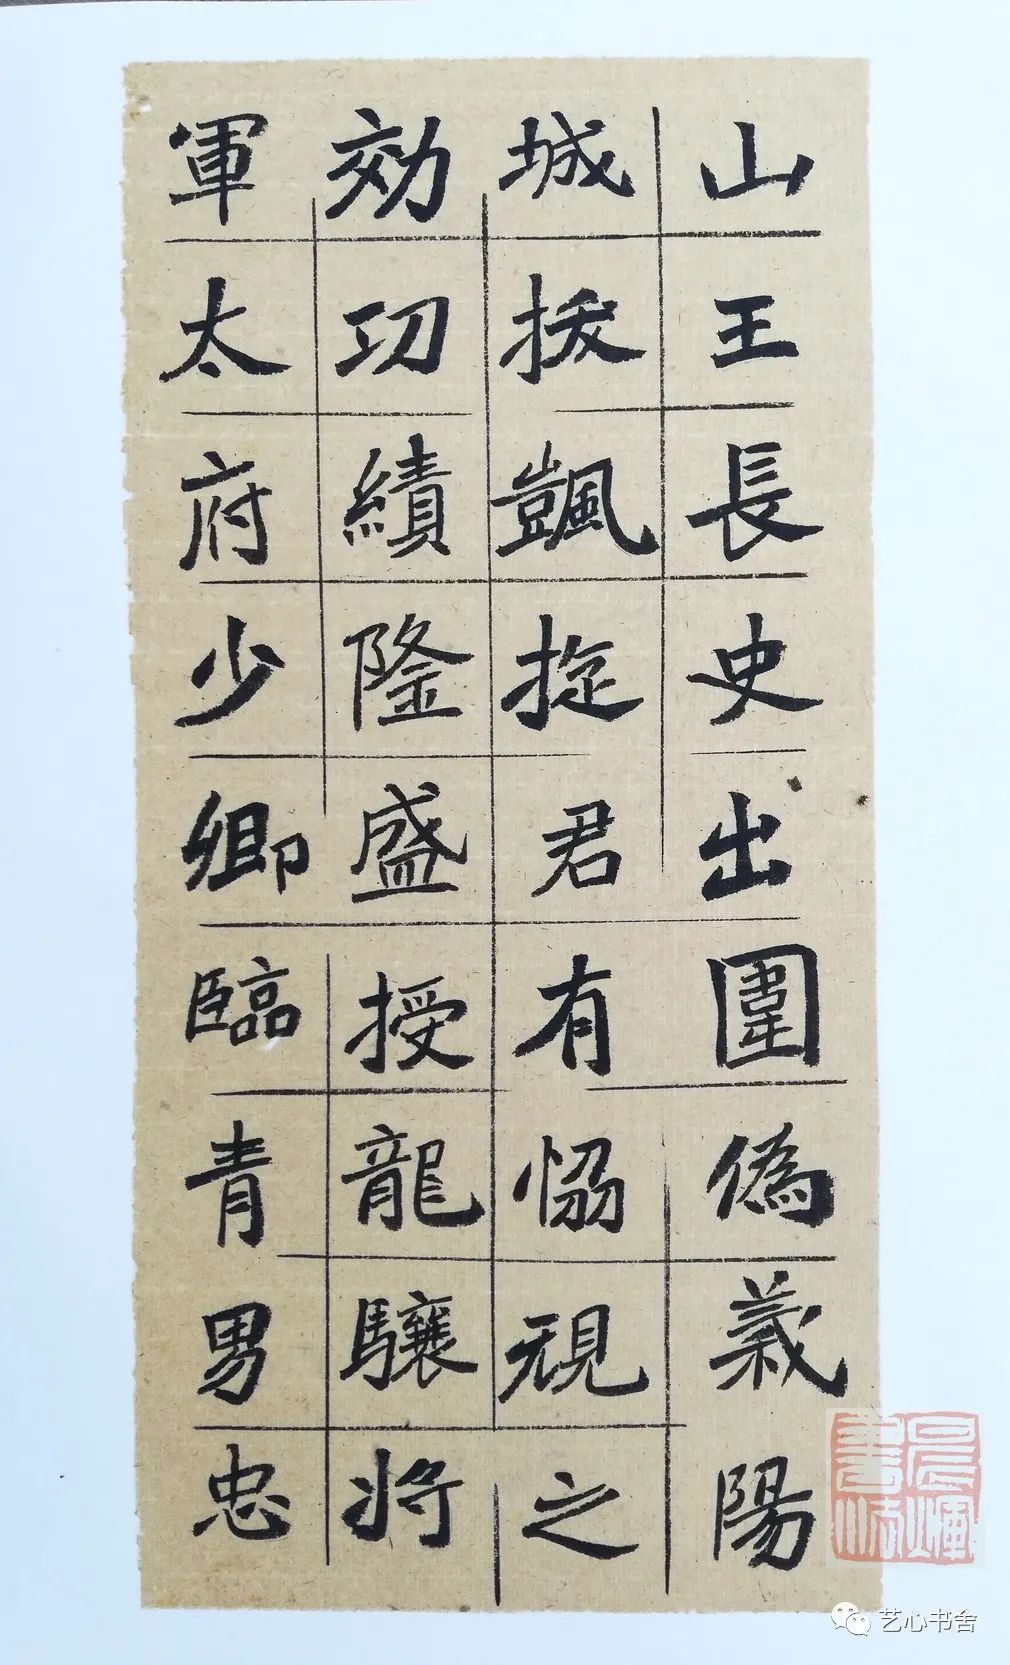 山王長史出圍偽義陽
城拔颽掟君有恊規之
効功績隆盛授龍驤将
軍太府少卿臨青男忠
艺心书舍